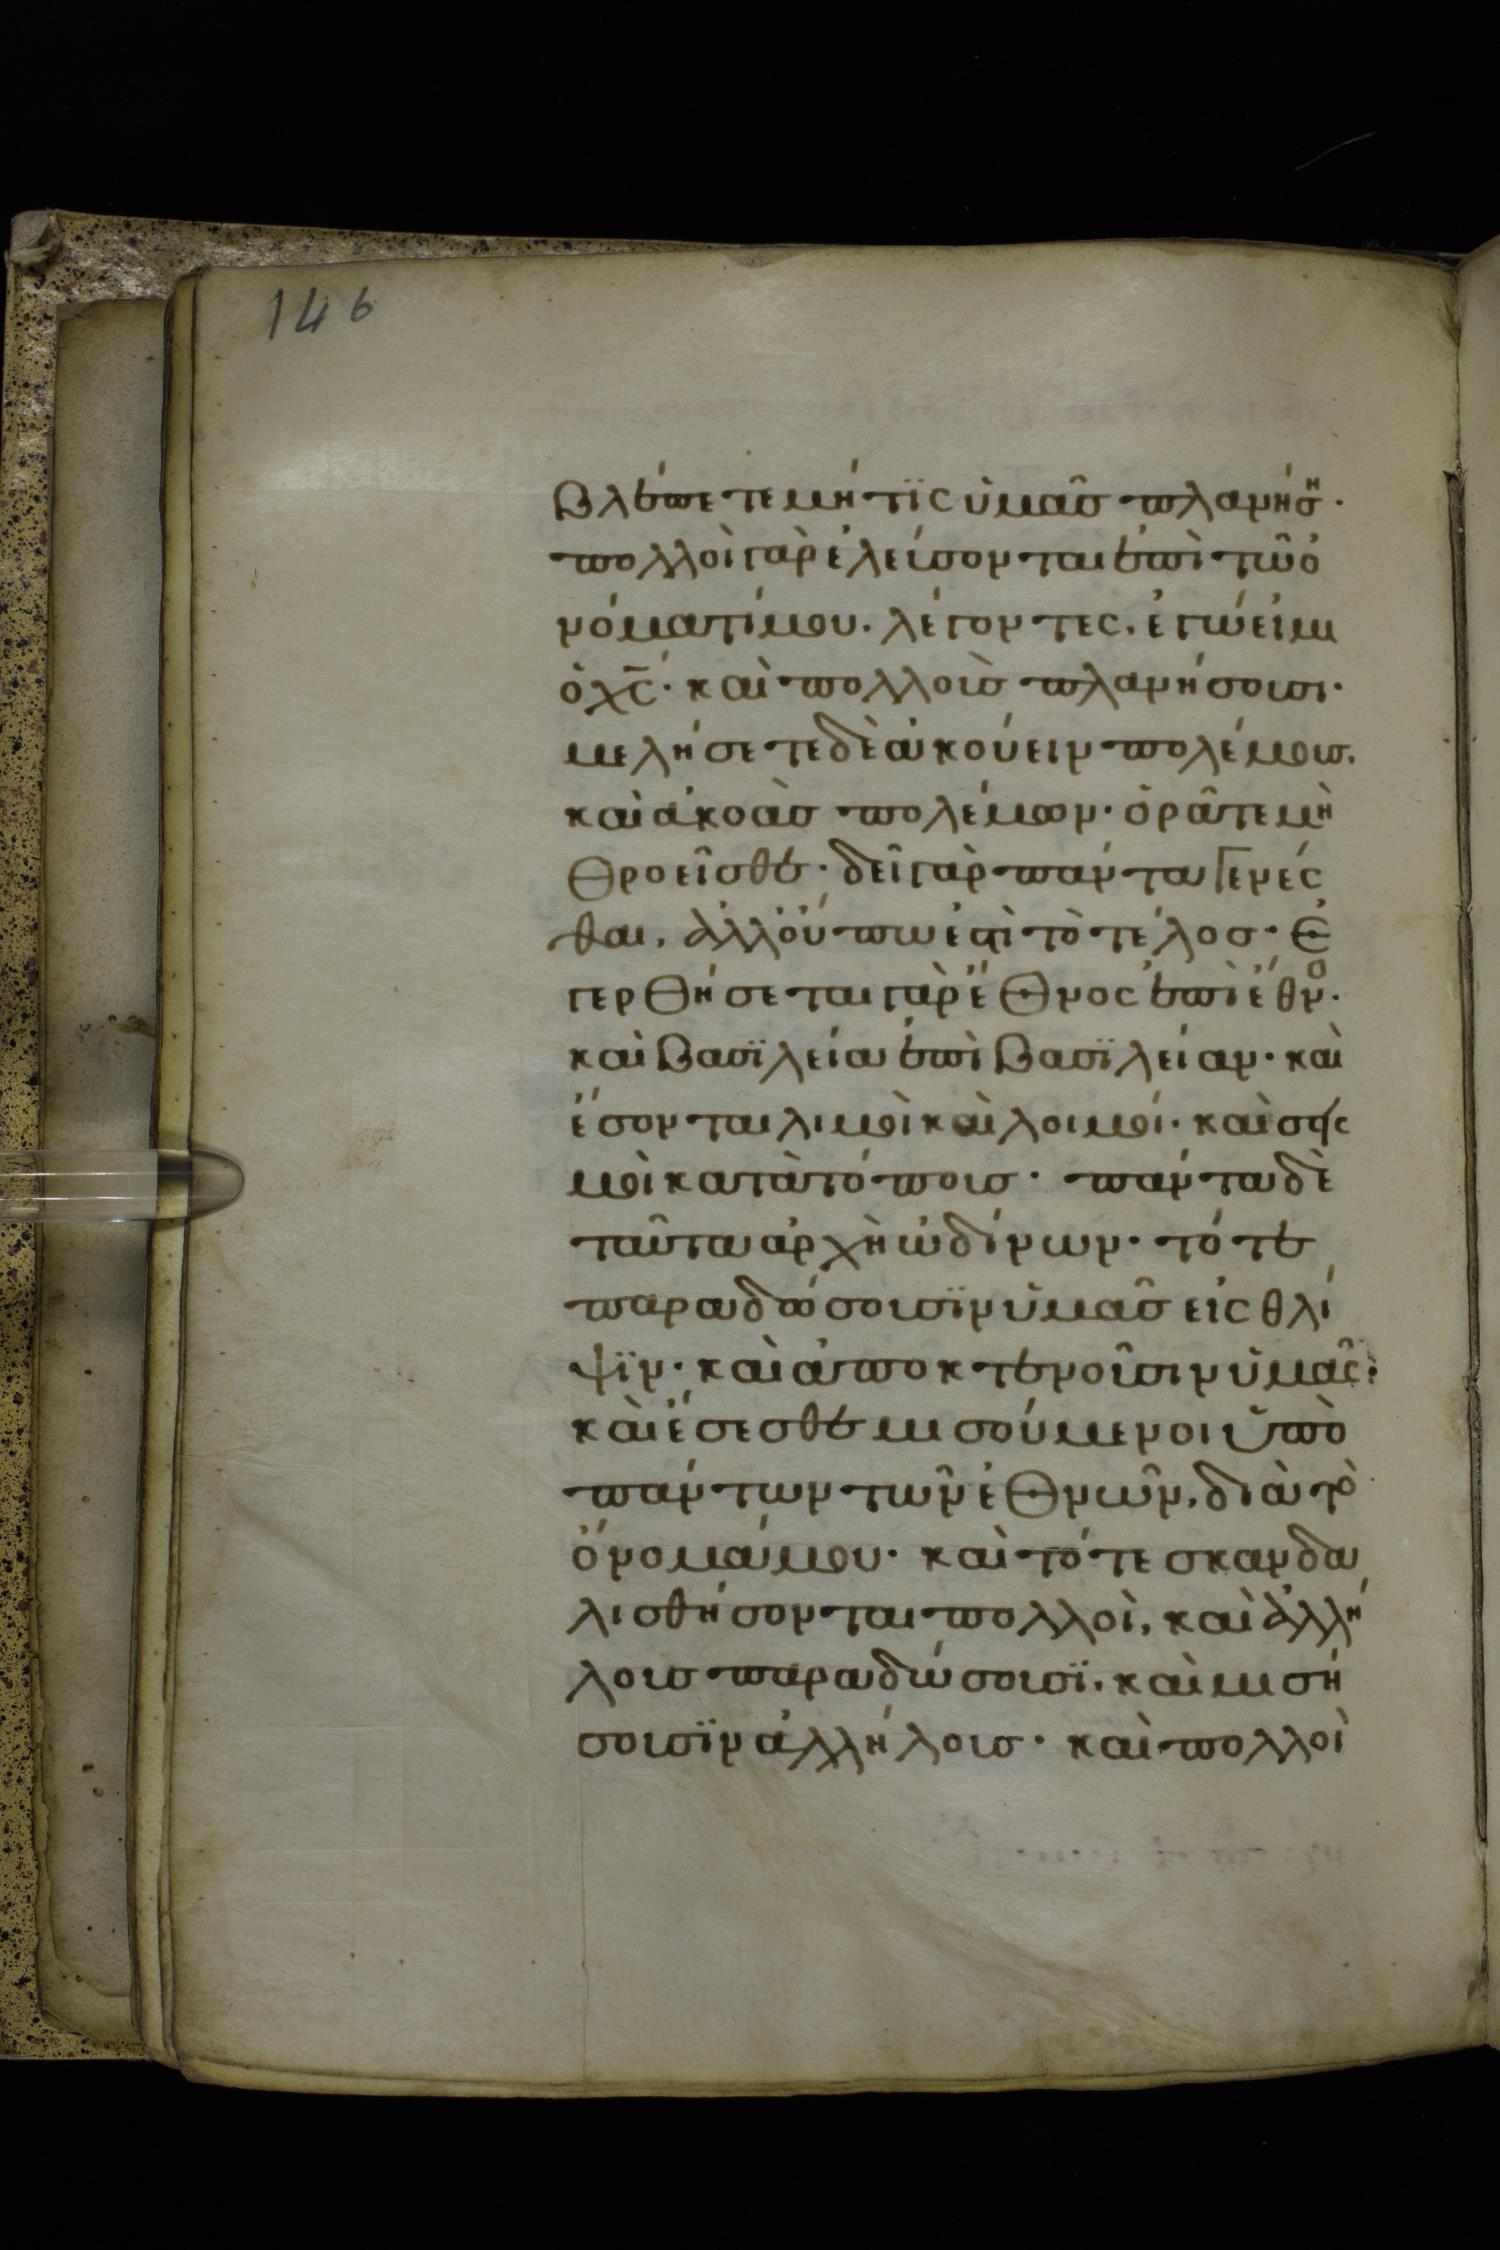 146
βλέπετε μή τϊς ὑμᾶσ πλανήσ̇η·
πολλοὶ γὰρ ἐλεύσονται ἐπὶ τῶ ὀ
νόματί μου. λέγοντες. ἐγώ εἰμι
ὁ χ̅ς̅· καὶ πολλοὺσ πλανήσουσι·
μελήσετε δὲ ἀκούειν πολέμουσ.
καὶ ἀκοὰσ πολέμων· ὁρᾶτε μὴ
θροεῖσθε· δεῖ γὰρ πάντα γενές
θαι. ἀλλ' οὔπω ἐστὶ τὸ τέλοσ· ἐ
γερθήσεται γὰρ ἔθνος ἐπὶ ἔθνο·
καὶ βασϊλεία ἐπὶ βασϊλείαν· καὶ
ἔσονται λιμοὶ καὶ λοιμοί· καὶ σεις
μοὶ κατὰ τόπουσ· πάντα δὲ
ταῦτα ἀρχὴ ὠδίνων· τότε
παραδώσουσϊν ὑμᾶσ εἰς θλί
ψϊν· καὶ ἀποκτενοῦσιν ὑμᾶς·
καὶ ἔσεσθε μισούμενοι ὑπὸ
πάντων τῶν ἐθνῶν, διὰ τὸ
ὄνομά μου· καὶ τότε σκανδα
λισθήσονται πολλοὶ, καὶ ἀλλή
λουσ παραδώσουσϊ. καὶ μισή
σουσϊν ἀλλήλουσ· καὶ πολλοὶ